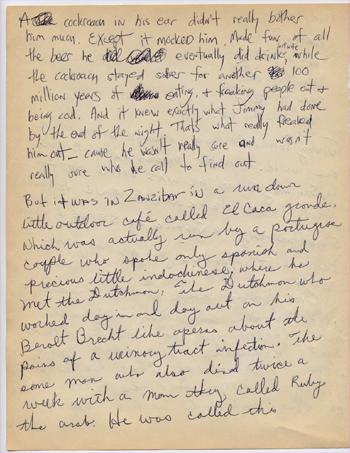 A cockroach in his ear didn't really bother
him much. Except it mocked him. Made fun of all
the beer he eventually did drink, while
the cockroach stayed sober for another 100
million years of eating, + freaking people out +
being cool. And it knew exactly what Jimmy had done
by the end of the night. That's what really freaked
him out - cause he wasn't really sure and wasn't
really sure who he call to find out
But it was in Zanzibar in a run down
little outdoor café called El Caca grande.
Which was actually run by a portugese
couple who spoke only spanish and
precious little indochinese, where he
met the Dutchman. The Dutchman who
worked day in and day out on his
Berolt Brecht like operas about the
pains of a urinary tract infection. The
same man who also dined twice a
week with a man they called Ruby
the arab. He was called this